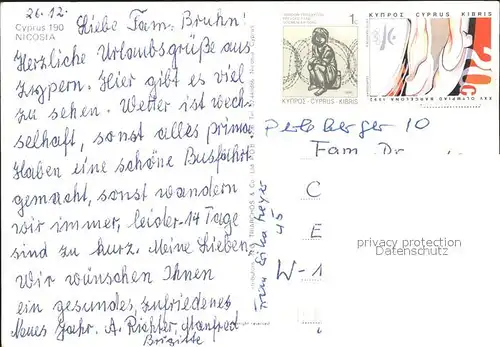 26.12.
Cyprus 190
NICOSIA
Liebe Fam. Bruhn!
Herzliche Urlaubsgrüße aus
Zypern. Hier gibt es viel
zu sehen. Wetter ist wech-
selhaft, sonst alles prima.
Haben eine schöne Busfahrt
gemacht, sonst wandern
wir immer, leider 14 Tage
sind zu kurz. Meine Lieben,
Wir wünschen Ihnen
ein gesundes, zufriedenes
Neues Jahr. A. Richter, Manfred
Brigitte
1c
ΚΥΠΡΟΣ · CYPRUS · KIBRIS
ΚΥΠΡΟΣ CYPRUS KIBRIS
20c
XXV OLYMPIAD BARCELONA 1992
Perleberger 10
Fam. Dr.
C
E
W-1
privacy protection
Datenschutz